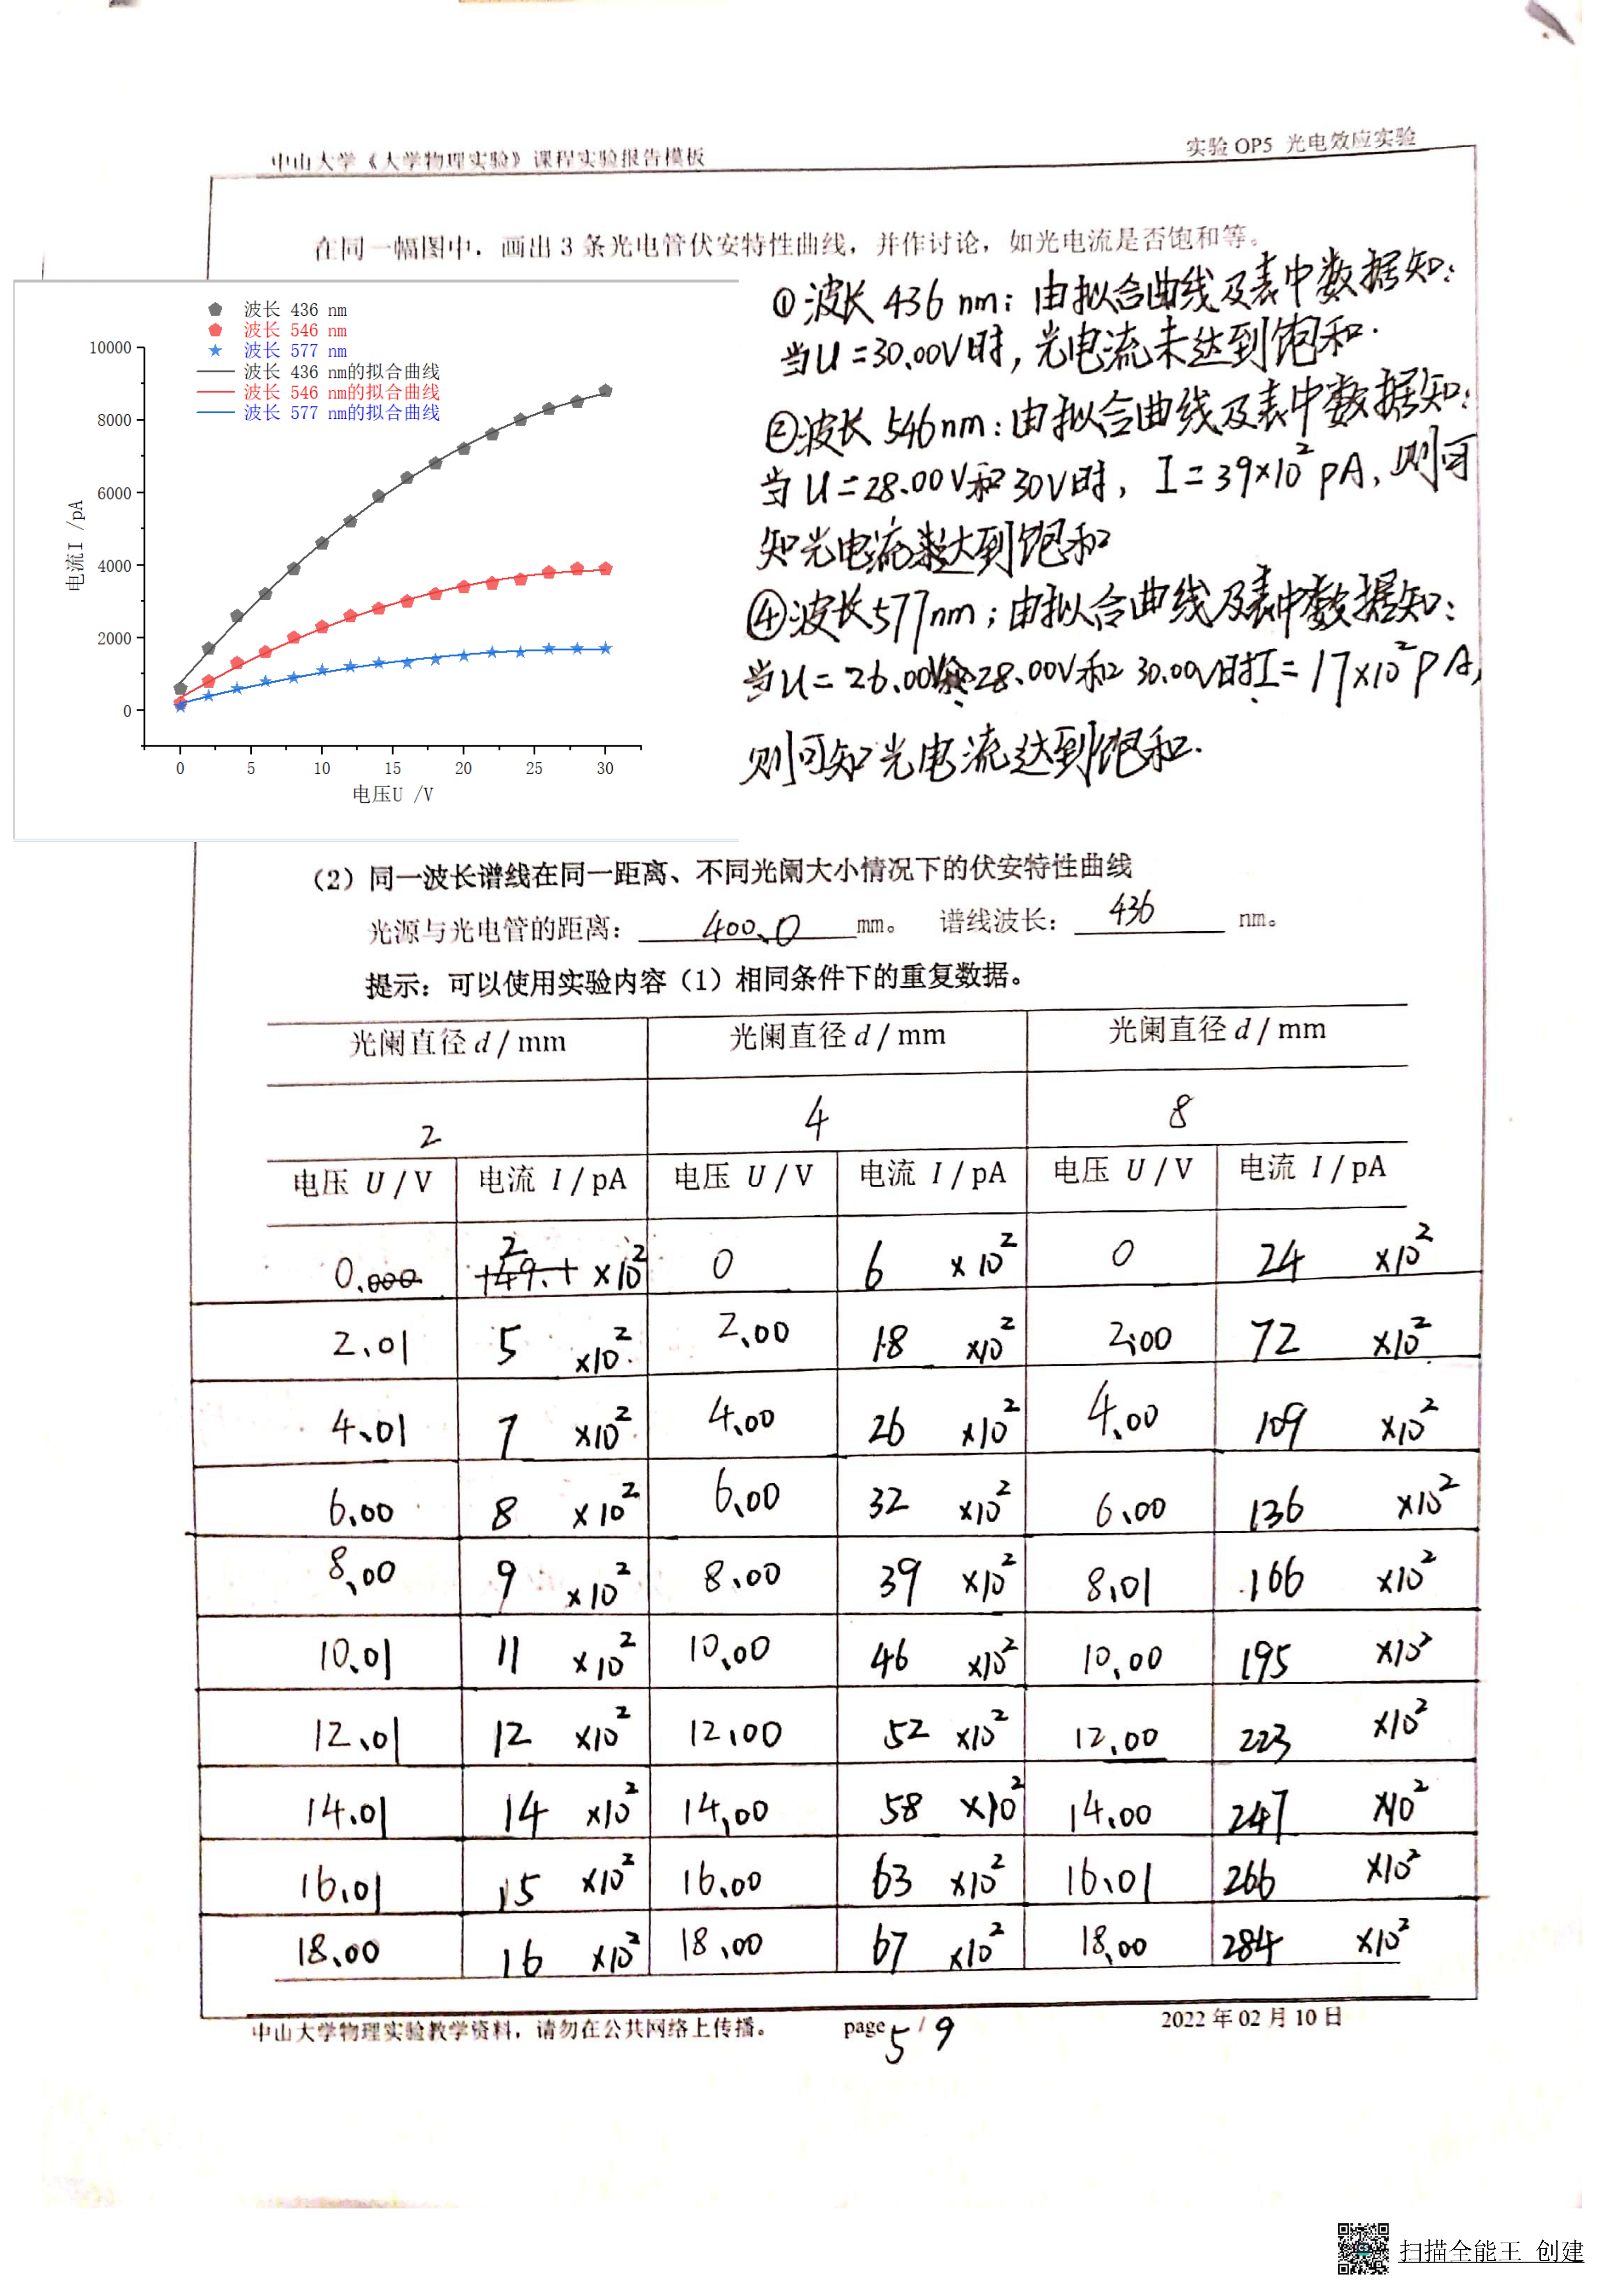 中山大学《大学物理实验》课程实验报告模板
实验 OP5 光电效应实验
在同一幅图中，画出 3 条光电管伏安特性曲线，并作讨论，如光电流是否饱和等。
波长 436 nm
波长 546 nm
波长 577 nm
波长 436 nm的拟合曲线
波长 546 nm的拟合曲线
波长 577 nm的拟合曲线
10000
8000
6000
4000
2000
0
电流I /pA
0 5 10 15 20 25 30
电压U /V
①波长 436 nm：由拟合曲线及表中数据知：
当U=30.00V时，光电流未达到饱和.
②波长 546nm：由拟合曲线及表中数据知：
当U=28.00V和30V时，I=39×10² pA，则可
知光电流达到饱和
④波长577nm；由拟合曲线及表中数据知：
当U=26.00V 28.00V和 30.00V时I=17×10² pA，
则可知光电流达到饱和.
（2）同一波长谱线在同一距离、不同光阑大小情况下的伏安特性曲线
光源与光电管的距离： 400.0 mm。 谱线波长： 436 nm。
提示：可以使用实验内容（1）相同条件下的重复数据。
光阑直径 d / mm 光阑直径 d / mm 光阑直径 d / mm
2 4 8
电压 U / V 电流 I / pA 电压 U / V 电流 I / pA 电压 U / V 电流 I / pA
0 2 ×10² 0 6 ×10² 0 24 ×10²
2.01 5 ×10² 2.00 18 ×10² 2.00 72 ×10²
4.01 7 ×10² 4.00 26 ×10² 4.00 109 ×10²
6.00 8 ×10² 6.00 32 ×10² 6.00 136 ×10²
8.00 9 ×10² 8.00 39 ×10² 8.01 166 ×10²
10.01 11 ×10² 10.00 46 ×10² 10.00 195 ×10²
12.01 12 ×10² 12.00 52 ×10² 12.00 223 ×10²
14.01 14 ×10² 14.00 58 ×10² 14.00 247 ×10²
16.01 15 ×10² 16.00 63 ×10² 16.01 266 ×10²
18.00 16 ×10² 18.00 67 ×10² 18.00 284 ×10²
中山大学物理实验教学资料，请勿在公共网络上传播。 page 5 / 9 2022 年 02 月 10 日
扫描全能王 创建